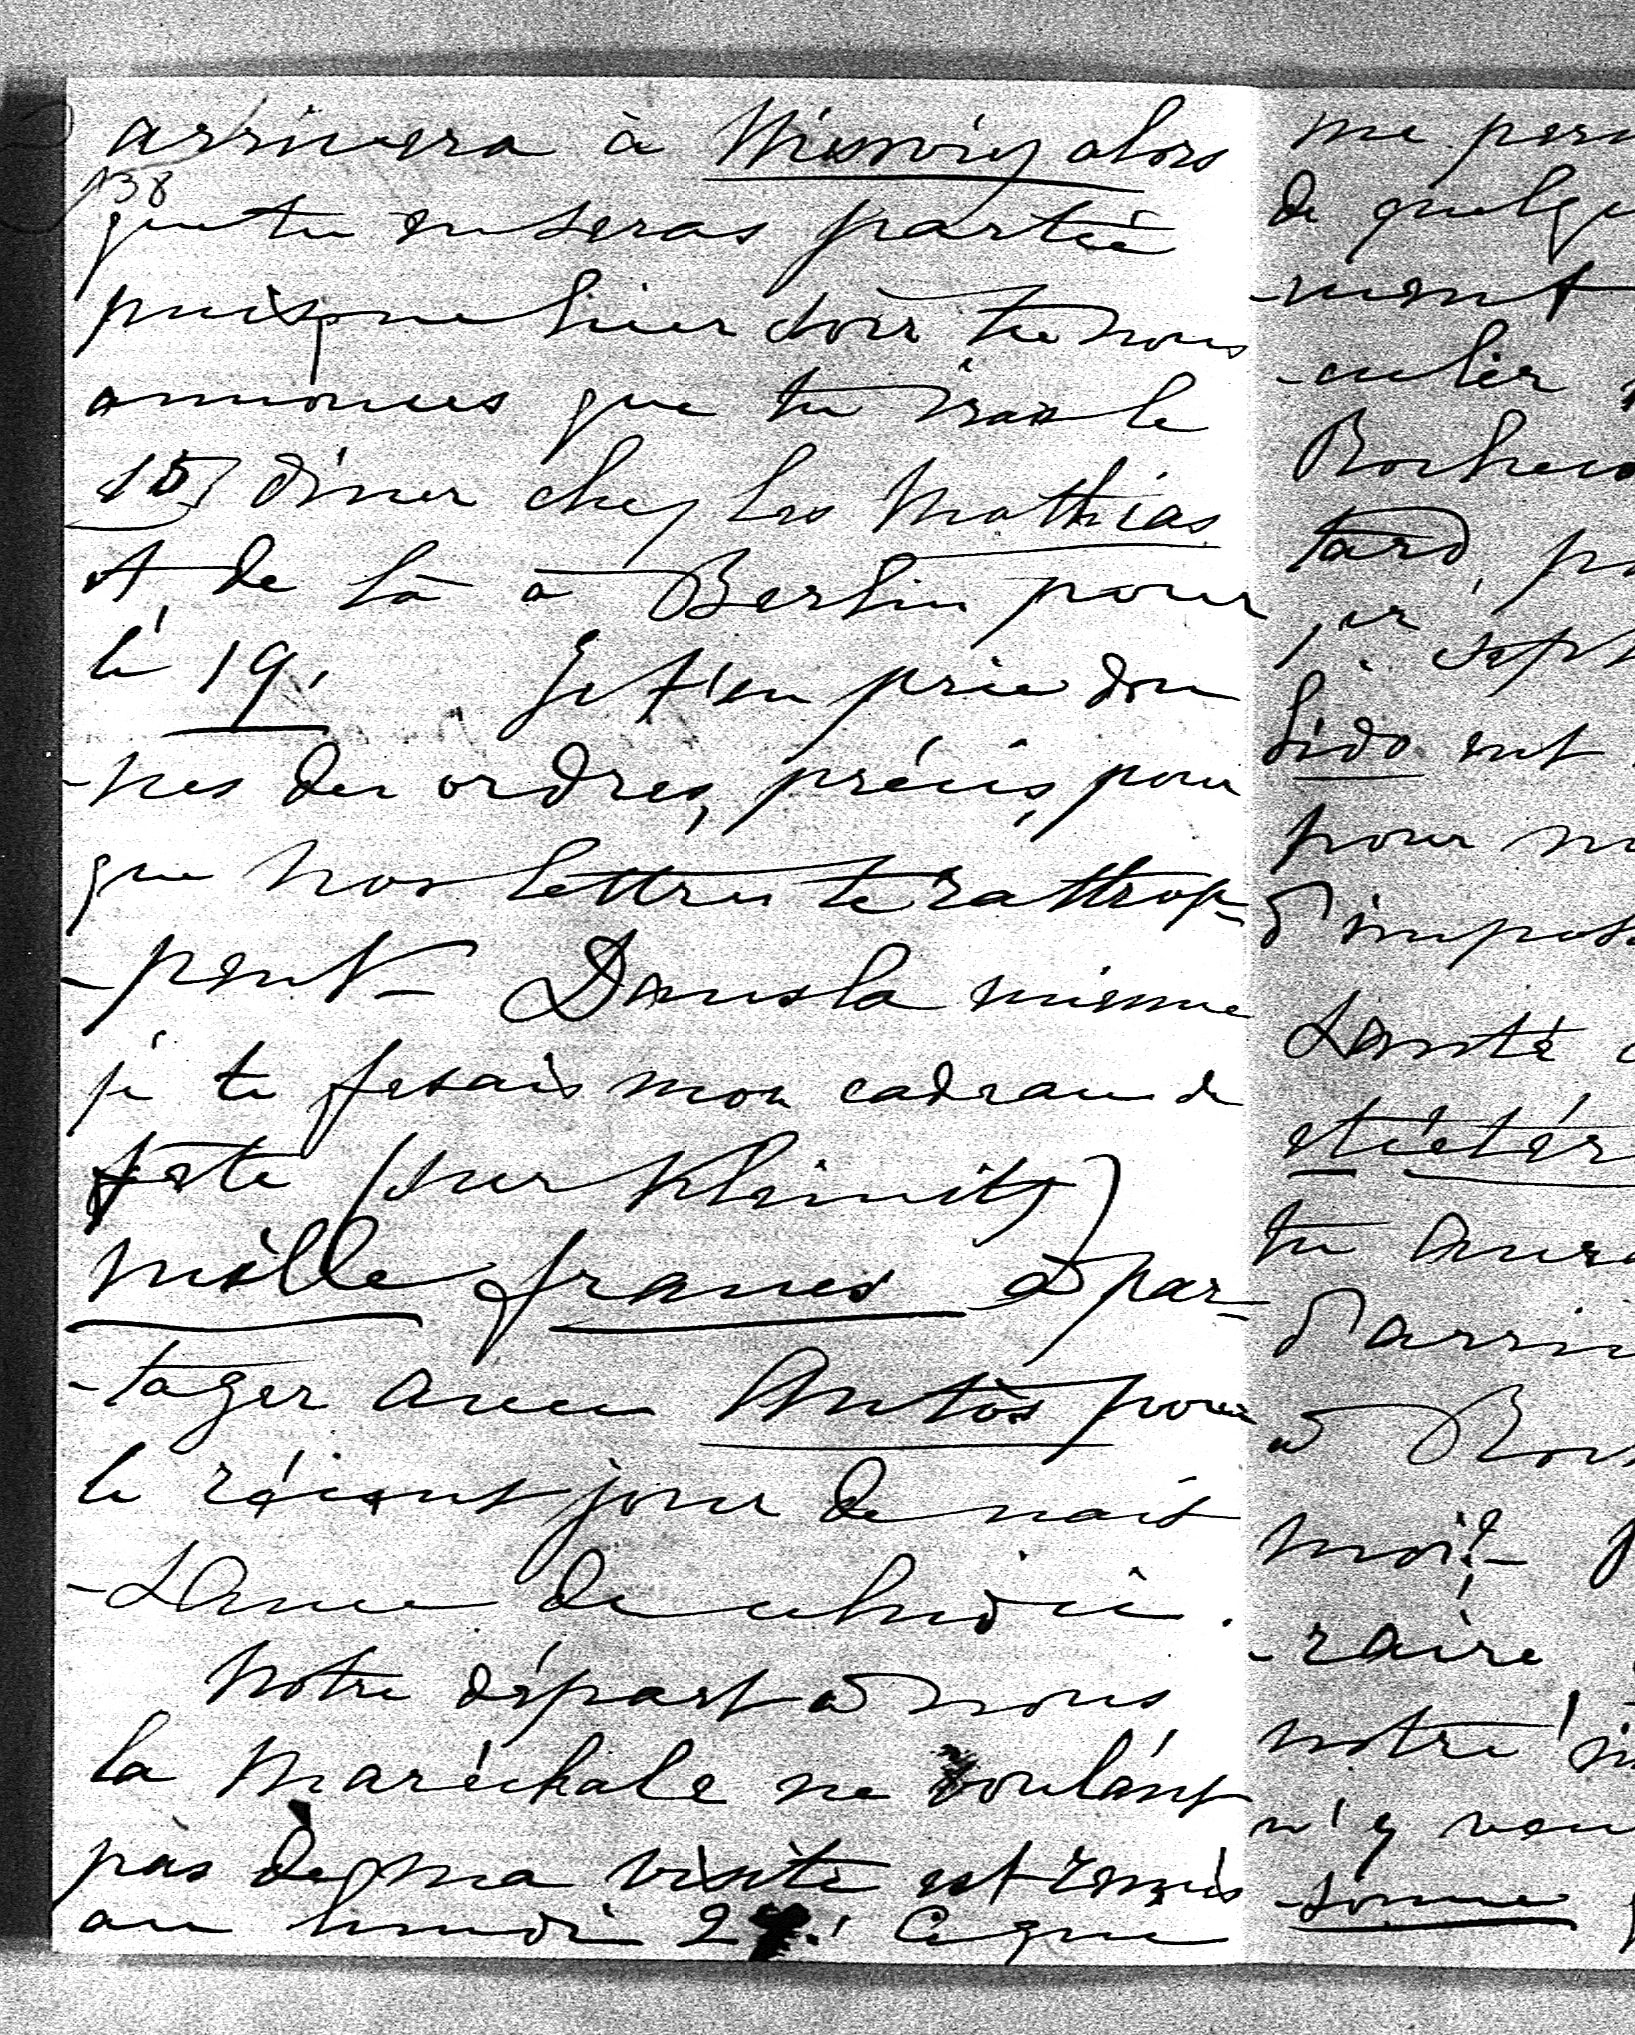 arrivera à alors
138
que tu en seras partie
puisque hier soir tu nous
annonces que tu iras le
15 dîner chez les Mathias
et de là à Berlin pour
le 19, Je t'en prie don
-nes des ordres, précis, pour
que nos lettres te rattrop-
-pent_ Dans la mienne
je te fesais mon cadeau de
fete (sur Kleinitz)
mille francs à par-
-tager avec Antos pour
le récent jour de nais
-sance de celui ci.
Notre départ à nous
la Maréchale ne voulant
pas de ma visite est remis
au lundi 2 ! Ce que
me
de
-ment
-culier

tard,
1er sept
Lido ont
pour
d'
Santé
et
tu
d'
à
moi?-
-raire
notre
n'y